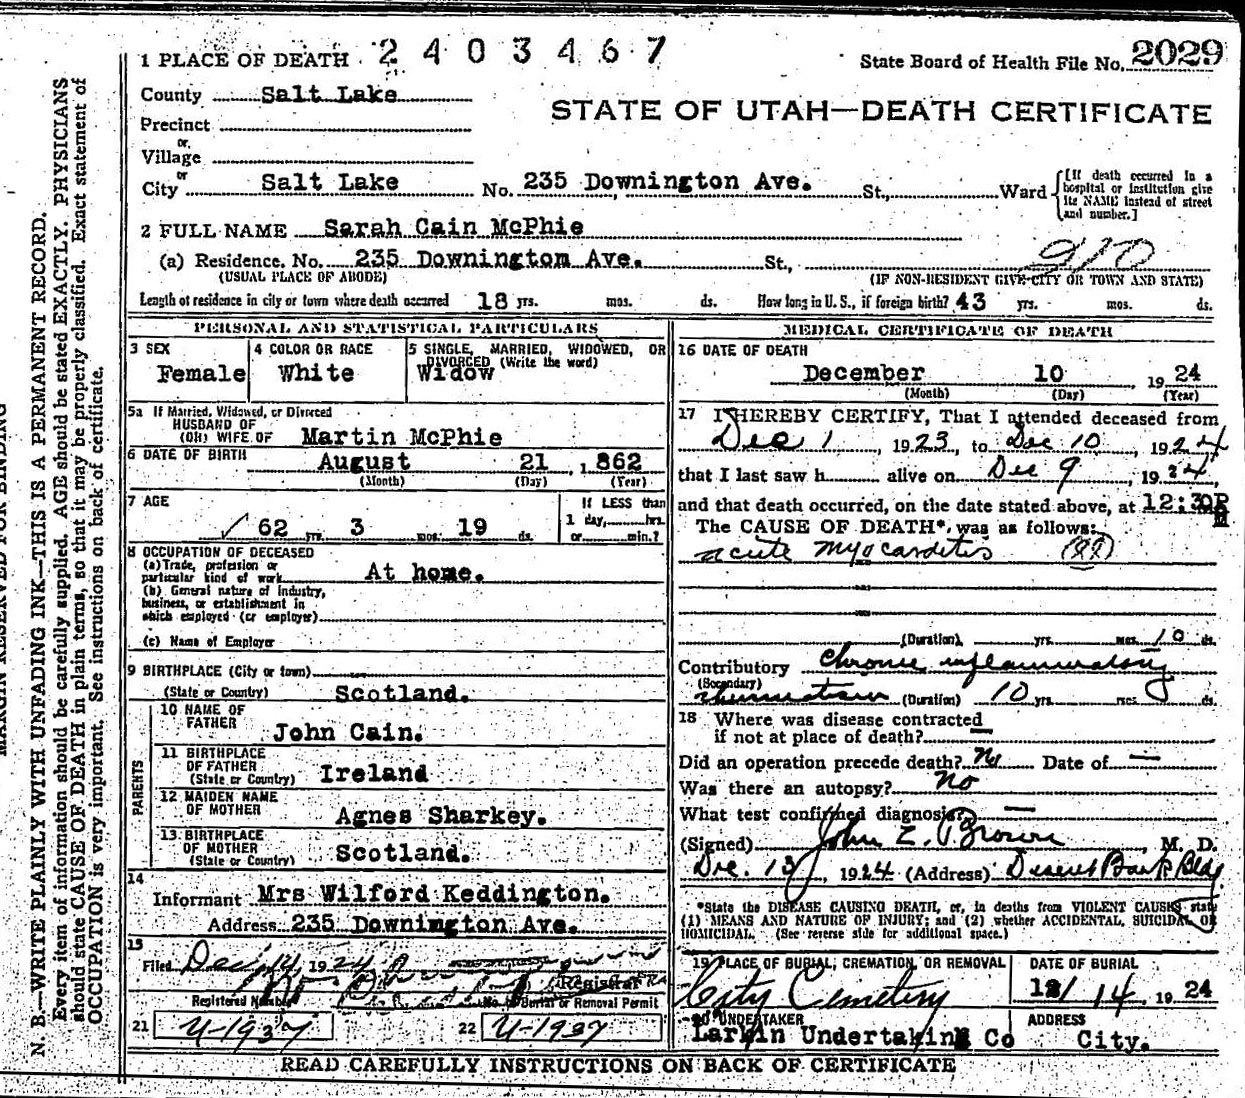 1 PLACE OF DEATH 2403467
State Board of Health File No. 2029
County Salt Lake
STATE OF UTAH—DEATH CERTIFICATE
Precinct
or
Village
or
City Salt Lake No. 235 Downington Ave. St., Ward
[If death occurred in a
hospital or institution give
its NAME instead of street
and number.]
2 FULL NAME Sarah Cain McPhie
910
(a) Residence, No. 235 Downington Ave. St.,
(USUAL PLACE OF ABODE) (IF NON-RESIDENT GIVE CITY OR TOWN AND STATE)
Length of residence in city or town where death occurred 18 yrs. mos. ds. How long in U. S., if foreign birth? 43 yrs. mos. ds.
PERSONAL AND STATISTICAL PARTICULARS
3 SEX
Female
4 COLOR OR RACE
White
5 SINGLE, MARRIED, WIDOWED, OR
DIVORCED (Write the word)
Widow
5a If Married, Widowed, or Divorced
HUSBAND OF
(OR) WIFE OF Martin McPhie
6 DATE OF BIRTH
August 21, 1862
(Month) (Day) (Year)
7 AGE
62 yrs. 3 mos. 19 ds.
If LESS than
1 day, hrs.
or min.?
8 OCCUPATION OF DECEASED
(a) Trade, profession or
particular kind of work At home.
(b) General nature of industry,
business, or establishment in
which employed (or employer)
(c) Name of Employer
9 BIRTHPLACE (City or town)
(State or Country) Scotland.
PARENTS
10 NAME OF
FATHER
John Cain.
11 BIRTHPLACE
OF FATHER
(State or Country) Ireland
12 MAIDEN NAME
OF MOTHER
Agnes Sharkey.
13 BIRTHPLACE
OF MOTHER
(State or Country) Scotland.
14
Informant Mrs Wilford Keddington.
Address 235 Downington Ave.
15
Filed Dec 14, 1924
Registrar
Registered Number No. of Burial or Removal Permit
21 U-1937 22 U-1937
MEDICAL CERTIFICATE OF DEATH
16 DATE OF DEATH
December 10, 1924
(Month) (Day) (Year)
17 I HEREBY CERTIFY, That I attended deceased from
Dec 1, 1923, to Dec 10, 1924
that I last saw h alive on Dec 9, 1924,
and that death occurred, on the date stated above, at 12:30P
M
The CAUSE OF DEATH*, was as follows:
acute myocarditis (88)
(Duration) yrs. mos. 10 ds.
Contributory chronic inflammatory
(Secondary)
rheumatism (Duration) 10 yrs. mos. ds.
18 Where was disease contracted
if not at place of death? —
Did an operation precede death? No Date of —
Was there an autopsy? No
What test confirmed diagnosis? —
(Signed) John Z. Brown, M. D.
Dec. 13, 1924 (Address) Deseret Bank Bldg
*State the DISEASE CAUSING DEATH, or, in deaths from VIOLENT CAUSES, state
(1) MEANS AND NATURE OF INJURY; and (2) whether ACCIDENTAL, SUICIDAL OR
HOMICIDAL. (See reverse side for additional space.)
19 PLACE OF BURIAL, CREMATION, OR REMOVAL
City Cemetery
DATE OF BURIAL
12/14 1924
20 UNDERTAKER
Larkin Undertaking Co
ADDRESS
City.
READ CAREFULLY INSTRUCTIONS ON BACK OF CERTIFICATE
MARGIN RESERVED FOR BINDING
N. B.—WRITE PLAINLY WITH UNFADING INK—THIS IS A PERMANENT RECORD.
Every item of information should be carefully supplied. AGE should be stated EXACTLY. PHYSICIANS
should state CAUSE OF DEATH in plain terms, so that it may be properly classified. Exact statement of
OCCUPATION is very important. See instructions on back of certificate.